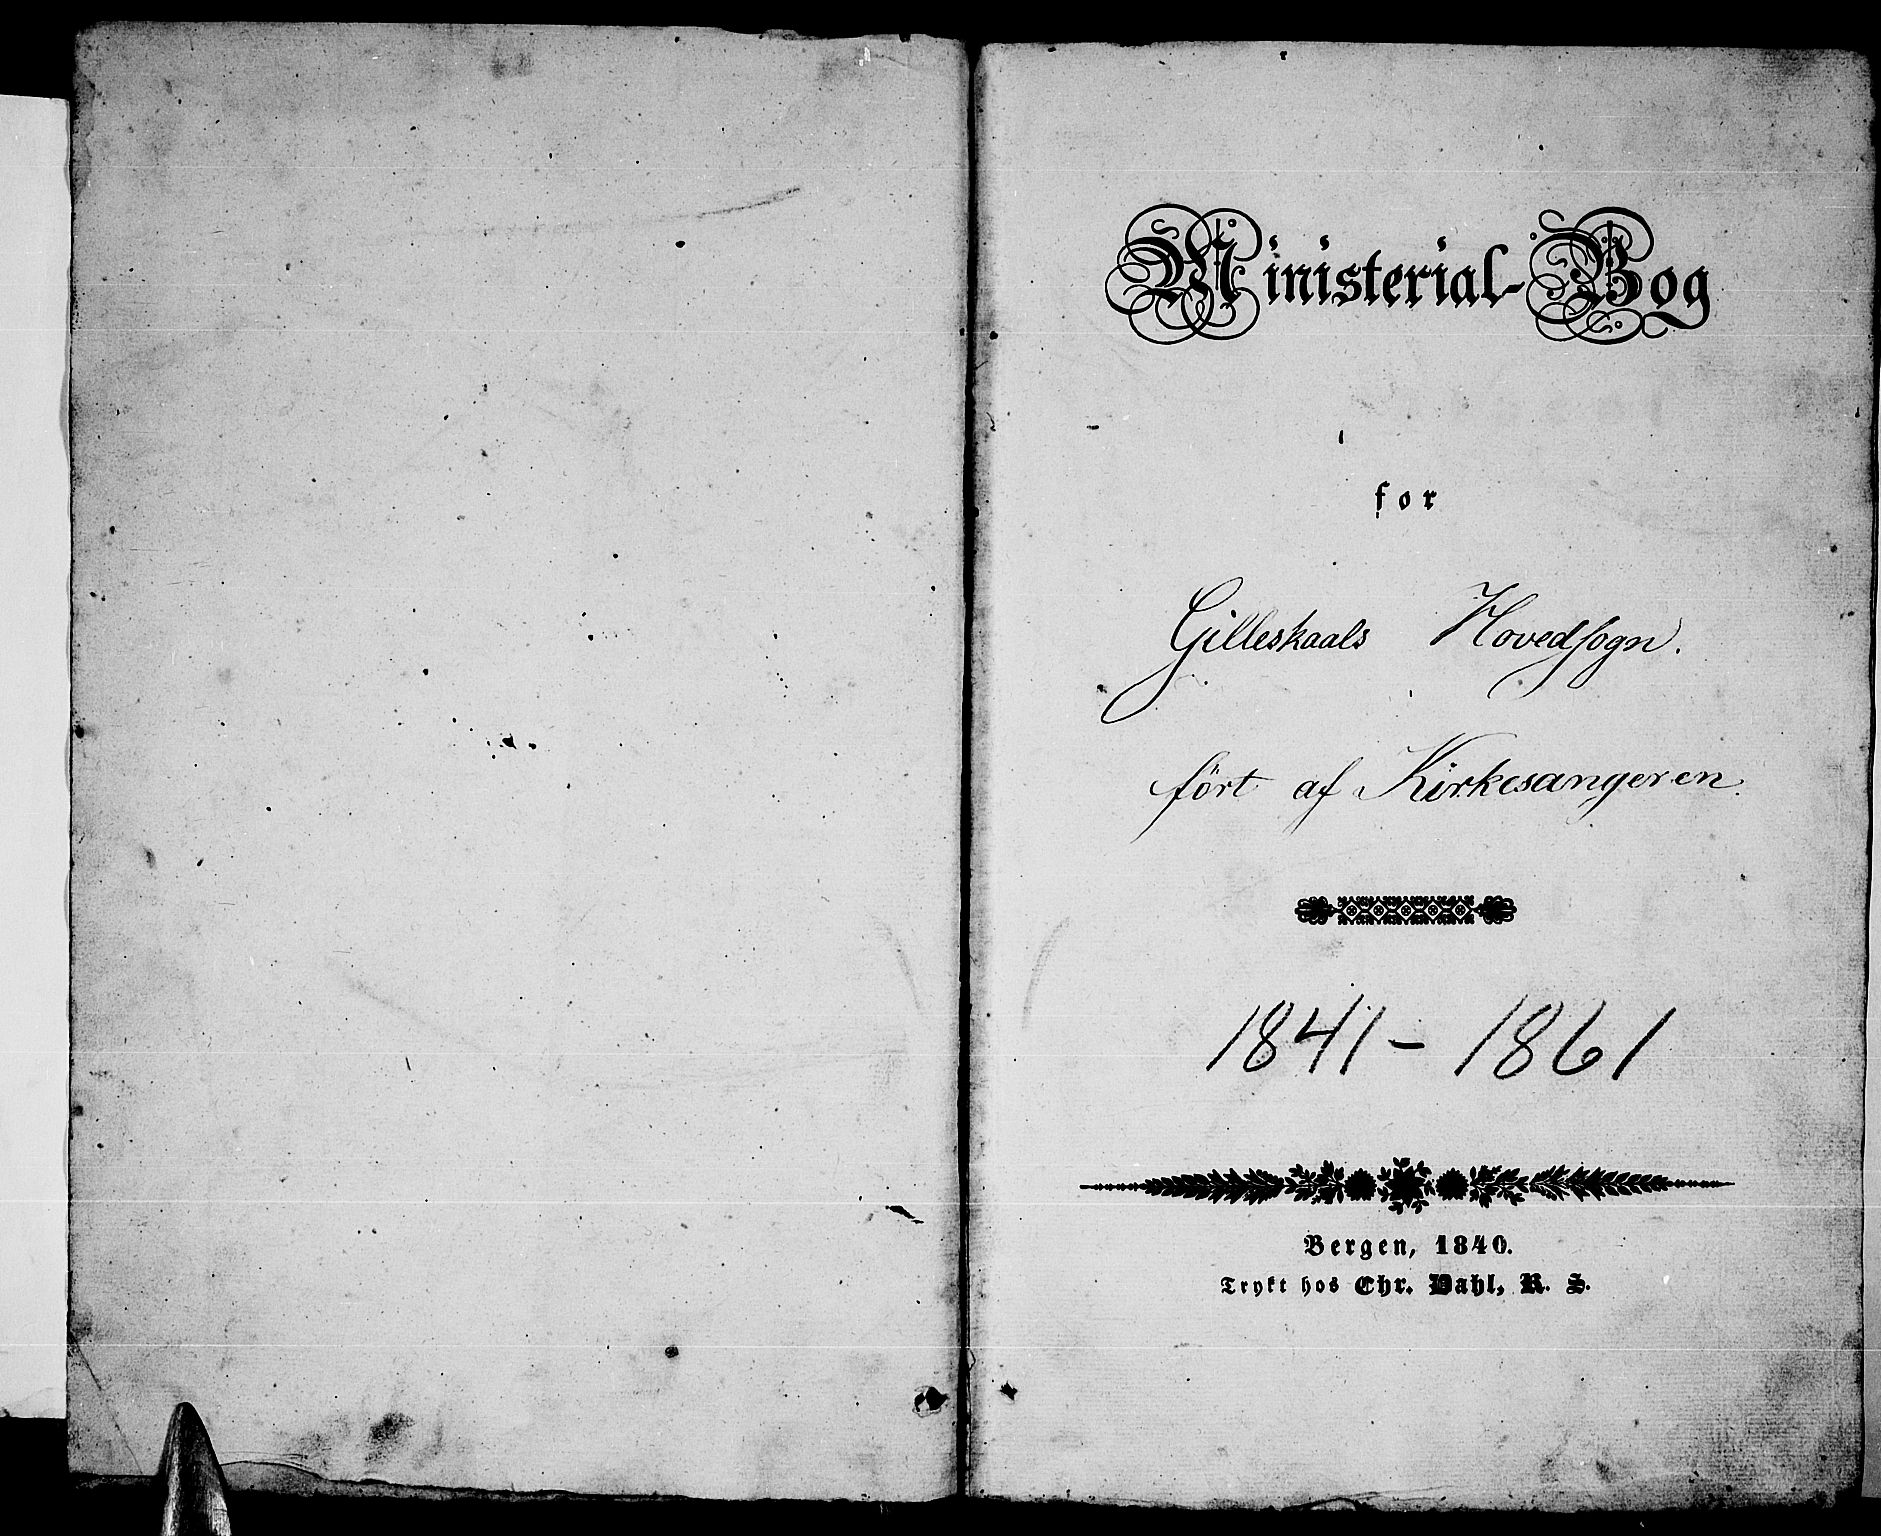 Ministerial-Bog
for
Gilleskaals Hovedsogn.
ført af Kirkesangeren.
1841 – 1861
Bergen, 1840.
Trykt hos Chr. Dahl, R. S.